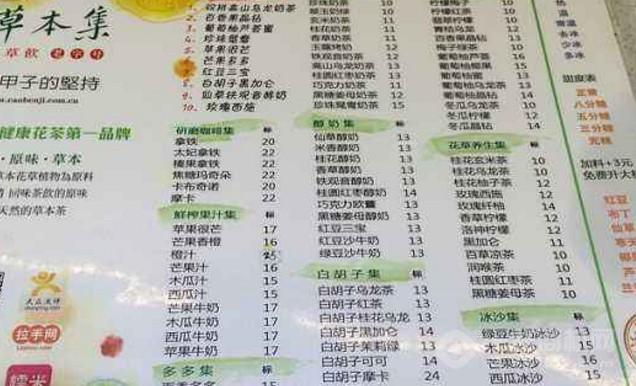 草本集
草飲 老字号
甲子的堅持
www.canbenji.com.cn
健康花茶第一品牌
·原味·草本
本草花草植物為原料
回味茶飲的原味
天然的草本茶
大众点评
拉手网
糯米
1. 玫瑰高山乌龙奶茶
2. 百香果晶钻
3. 葡萄柚芦荟蜜
4. 珍珠鸳鸯
5. 苹果很芒
6. 芒果多多
7. 红豆三宝
8. 白胡子黑加仑
9. 仙草铁观音奶茶
10. 玫瑰西施
研磨咖啡集 标
拿铁 20
太妃拿铁 22
榛果拿铁 22
焦糖玛奇朵 22
卡布奇诺 20
摩卡 22
鲜榨果汁集 标
苹果很芒 17
芒果香橙 16
橙汁
芒果汁 16
木瓜汁 15
西瓜汁 15
芒果牛奶 17
木瓜牛奶 17
西瓜牛奶 17
苹果牛奶 17
多多集 标
珍珠奶茶 10
翠玉奶绿
玄米奶茶 10
桂花奶茶 11
香草奶茶 11
玉露烤奶 12
铁观音奶茶 12
高山乌龙奶茶 13
桂圆红枣奶茶 13
巧克力奶茶 11
黑糖姜母奶茶 12
珍珠鸳鸯奶茶 15
醇奶集 标
仙草醇奶 13
米香醇奶 13
桂花醇奶 13
香草醇奶 13
铁观音醇奶 13
桂圆红枣醇奶 14
巧克力欧蕾 13
黑糖姜母醇奶 13
红豆三宝 13
红豆沙牛奶 13
绿豆沙牛奶 13
白胡子集 标
白胡子乌龙茶 13
白胡子红茶 13
白胡子桂花乌龙 13
白胡子黑加仑 14
白胡子茉莉绿 13
白胡子可可 14
白胡子摩卡 24
柠檬梅子
柠檬红茶 10
翡翠柠檬 10
青桔乌龙 12
百香果晶钻 13
梅子绿茶 10
葡萄柚芦荟 16
葡萄柚椰果 15
葡萄柚蜜 13
葡萄柚晶钻 14
冬瓜乌龙茶 10
冬瓜柠檬 12
冬瓜晶钻 14
花草养生集 标
桂花玄米茶 10
桂花乌龙茶 10
桂花柚子茶 12
玫瑰西施 12
玫瑰纤柚 14
香草柠檬 12
洛神柠檬 12
黑加仑 11
百草凉茶 10
润喉茶 10
桂圆红枣茶 11
黑糖姜母茶 10
冰沙集 标
绿豆牛奶冰沙 13
木瓜冰沙 15
芒果冰沙 16
西瓜冰沙 15
热
温
常温
去冰
少冰
多冰
甜度表
正常
八分糖
五分糖
三分糖
无糖
加料+3元
免费升大杯
红豆
布丁
仙草